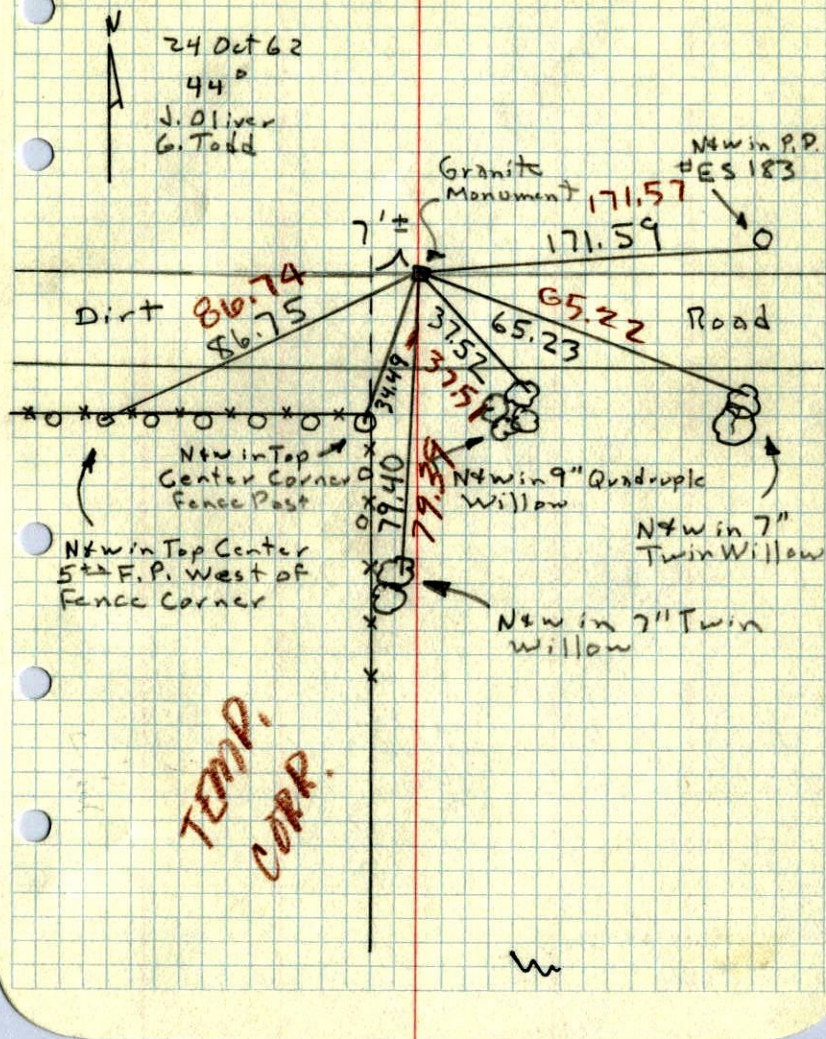 N
24 Oct 62
44°
J. Oliver
G. Todd
N&W in P.P.
#ES 183
Granite
Monument
171.57
171.59
7'±
86.74
86.75
Dirt
Road
65.22
65.23
37.52
37.51
34.49
79.40
79.39
N&W in Top
Center Corner
Fence Post
N&W in 9" Quadruple
Willow
N&W in 7"
Twin Willow
N&W in Top Center
5th F.P. West of
Fence Corner
N&W in 7" Twin
Willow
TEMP.
CORR.